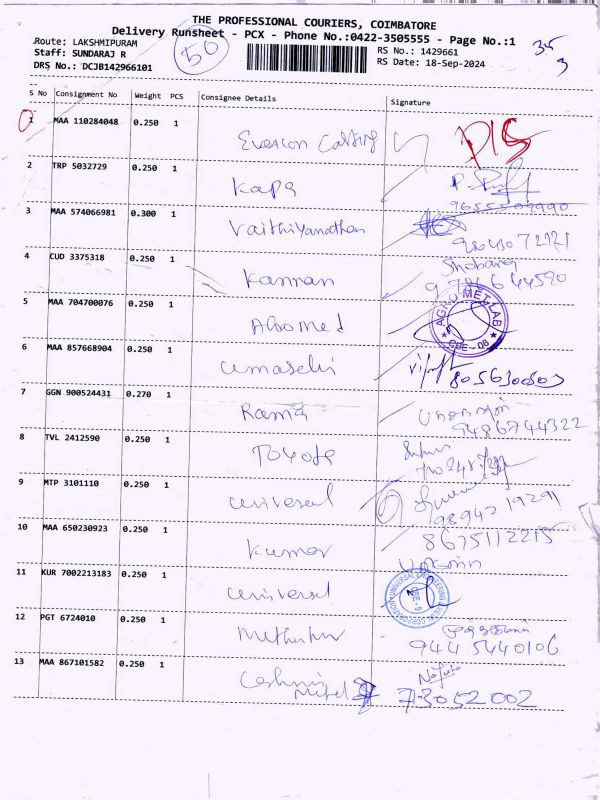 THE PROFESSIONAL COURIERS, COIMBATORE
Delivery Runsheet - PCX - Phone No.:0422-3505555 - Page No.:1
Route: LAKSHMIPURAM
Staff: SUNDARAJ R
DRS No.: DCJB142966101
50
RS No.: 1429661
RS Date: 18-Sep-2024
S No Consignment No Weight PCS Consignee Details Signature
1 MAA 110284048 0.250 1
2 TRP 5032729 0.250 1 Kapa
3 MAA 574066981 0.300 1 Vaithiyanathan
4 CUD 3375318 0.250 1 Kannan
Shobana
5 MAA 704700076 0.250 1 AGROMET LAB CBE-06
6 MAA 857668904 0.250 1 umaselvi
7 GGN 900524431 0.270 1 Rama
9486744322
8 TVL 2412590 0.250 1 Toyota
9 MTP 3101110 0.250 1 universal
98942 19291
10 MAA 650230923 0.250 1 Kumar
8675112215
11 KUR 7002213183 0.250 1 universal
12 PGT 6724010 0.250 1
944 5440106
13 MAA 867101582 0.250 1
73052 002